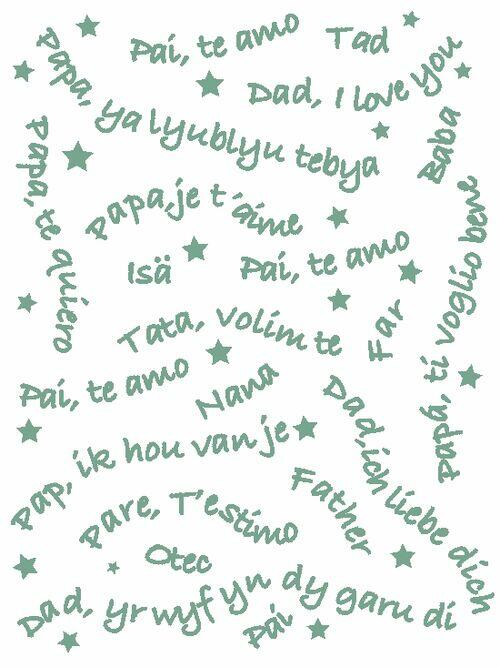 Pai, te amo
Tad
Dad, I love you
Papa, ya lyublyu tebya
Baba
Papa, te quiero
Papa, je t'aime
Isä
Pai, te amo
Papá, ti voglio bene
Tata, volim te
Far
Pai, te amo
Nana
Dad, ich liebe dich
Pap, ik hou van je
Father
Pare, T'estimo
Otec
Dad, yr wyf yn dy garu di
Pai